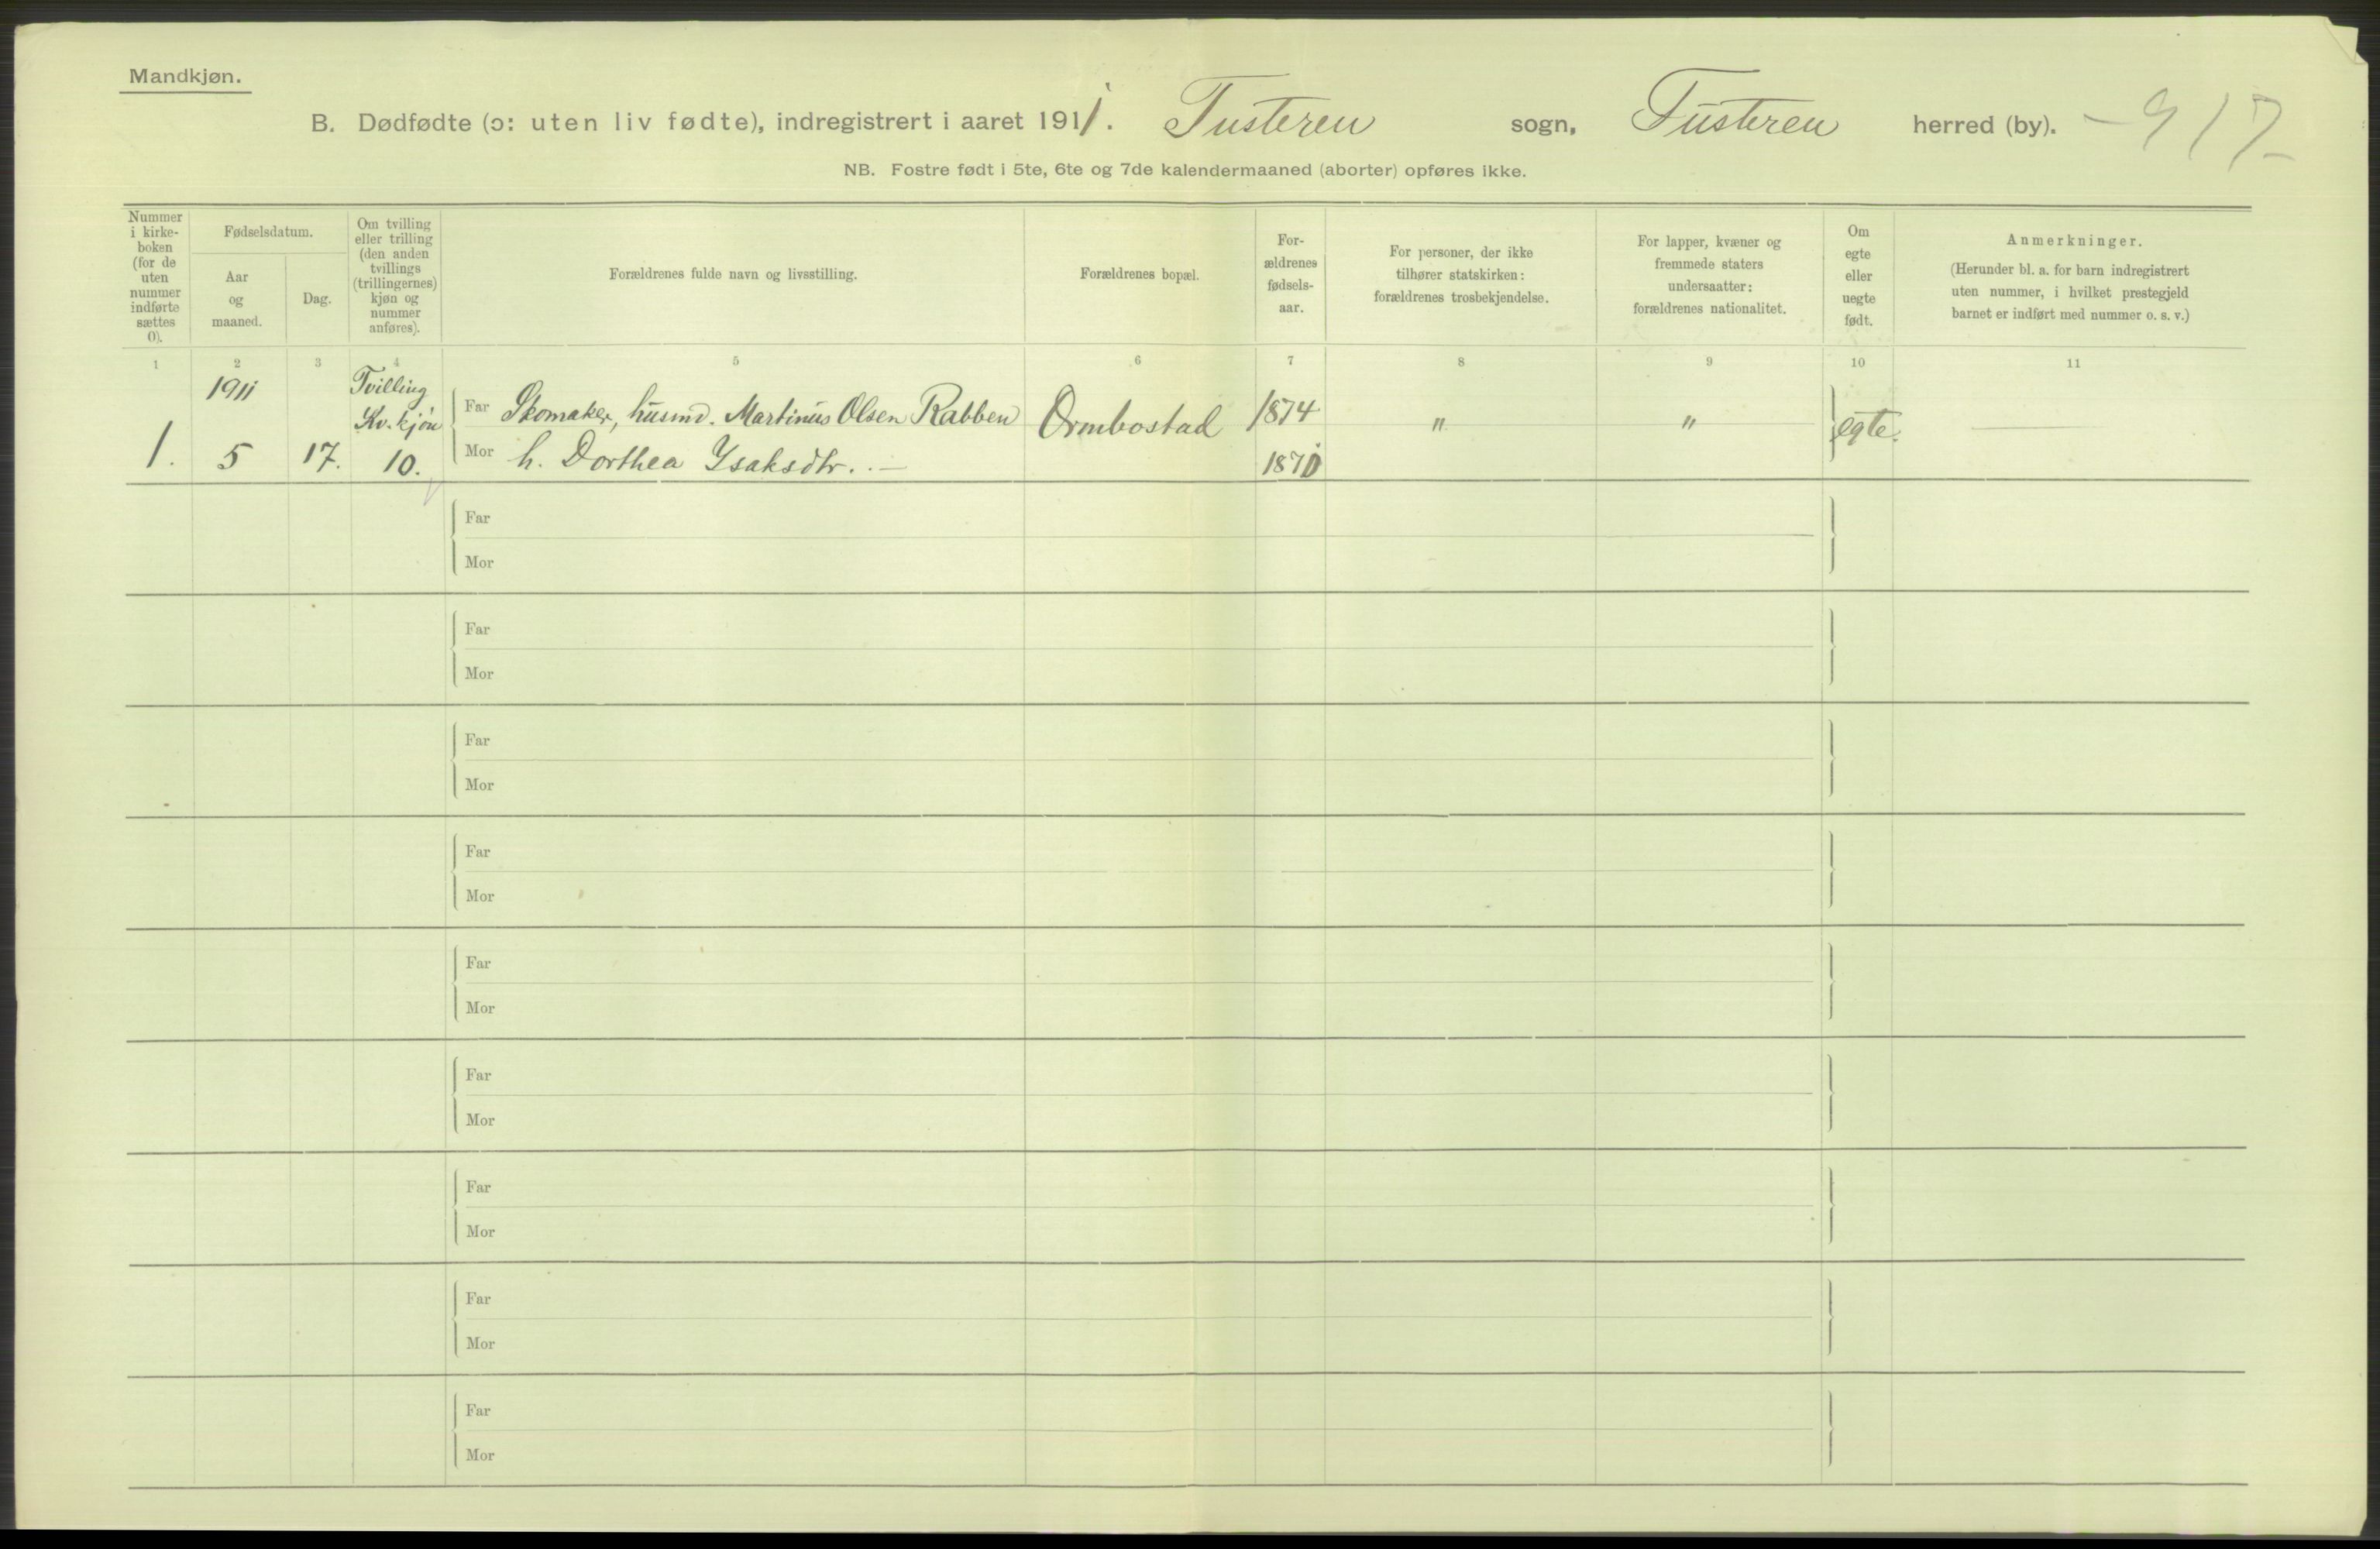 Mandkjøn.
B. Dødfødte (ɔ: uten liv fødte), indregistrert i aaret 1911. Tusteren sogn, Tusteren herred (by). – 917
NB. Fostre født i 5te, 6te og 7de kalendermaaned (aborter) opføres ikke.
Nummer
i kirke-
boken
(for de
uten
nummer
indførte
sættes
0).
Fødselsdatum.
Aar
og
maaned.
Dag.
Om tvilling
eller trilling
(den anden
tvillings
(trillingernes)
kjøn og
nummer
anføres).
Forældrenes fulde navn og livsstilling.
Forældrenes bopæl.
For-
ældrenes
fødsels-
aar.
For personer, der ikke
tilhører statskirken:
forældrenes trosbekjendelse.
For lapper, kvæner og
fremmede staters
undersaatter:
forældrenes nationalitet.
Om
egte
eller
uegte
født.
Anmerkninger.
(Herunder bl. a. for barn indregistrert
uten nummer, i hvilket prestegjeld
barnet er indført med nummer o. s. v.)
1 2 3 4 5 6 7 8 9 10 11
1911 Tvilling
Kv. kjøn Far Skomaker, husmd. Martinus Olsen Rabben Ormbostad 1874 " " egte. —
1. 5 17. 10. Mor h. Dorthea Ysaksdtr. . — 187
Far
Mor
Far
Mor
Far
Mor
Far
Mor
Far
Mor
Far
Mor
Far
Mor
Far
Mor
Far
Mor